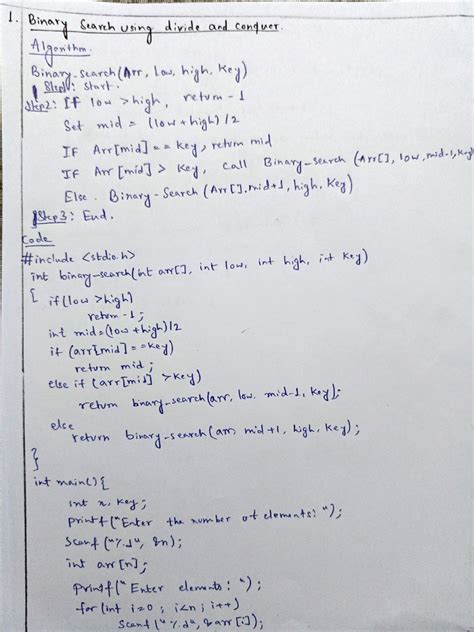 1. Binary Search using divide and conquer.
Algorithm.
Binary-search(Arr, Low, high, Key)
Step1: Start.
Step2: If low > high, return -1
Set mid = (low + high) /2
IF Arr[mid] == Key, return mid
IF Arr [mid] > Key, call Binary-search (Arr[], low, mid-1, Key)
Else. Binary-Search (Arr [], mid+1, high, Key)
Step3: End.
Code
#include <stdio.h>
int binary-search(int arr[], int low, int high, int Key)
{ if(low > high)
return -1;
int mid=(low + high)/2
if (arr[mid] == key)
return mid;
else if (arr[mid] > Key)
return bnary-search(arr, low. mid-1, Key);
else
return binary-search(arr, mid +1, high, Key);
}
int main() {
int n, Key;
printf ("Enter the number of elements: ");
Scanf ("%d", &n);
int arr[n];
printf (" Enter elements: ");
for (int i=0 ; i<n ; i++)
Scanf ("%d", &arr[i]);